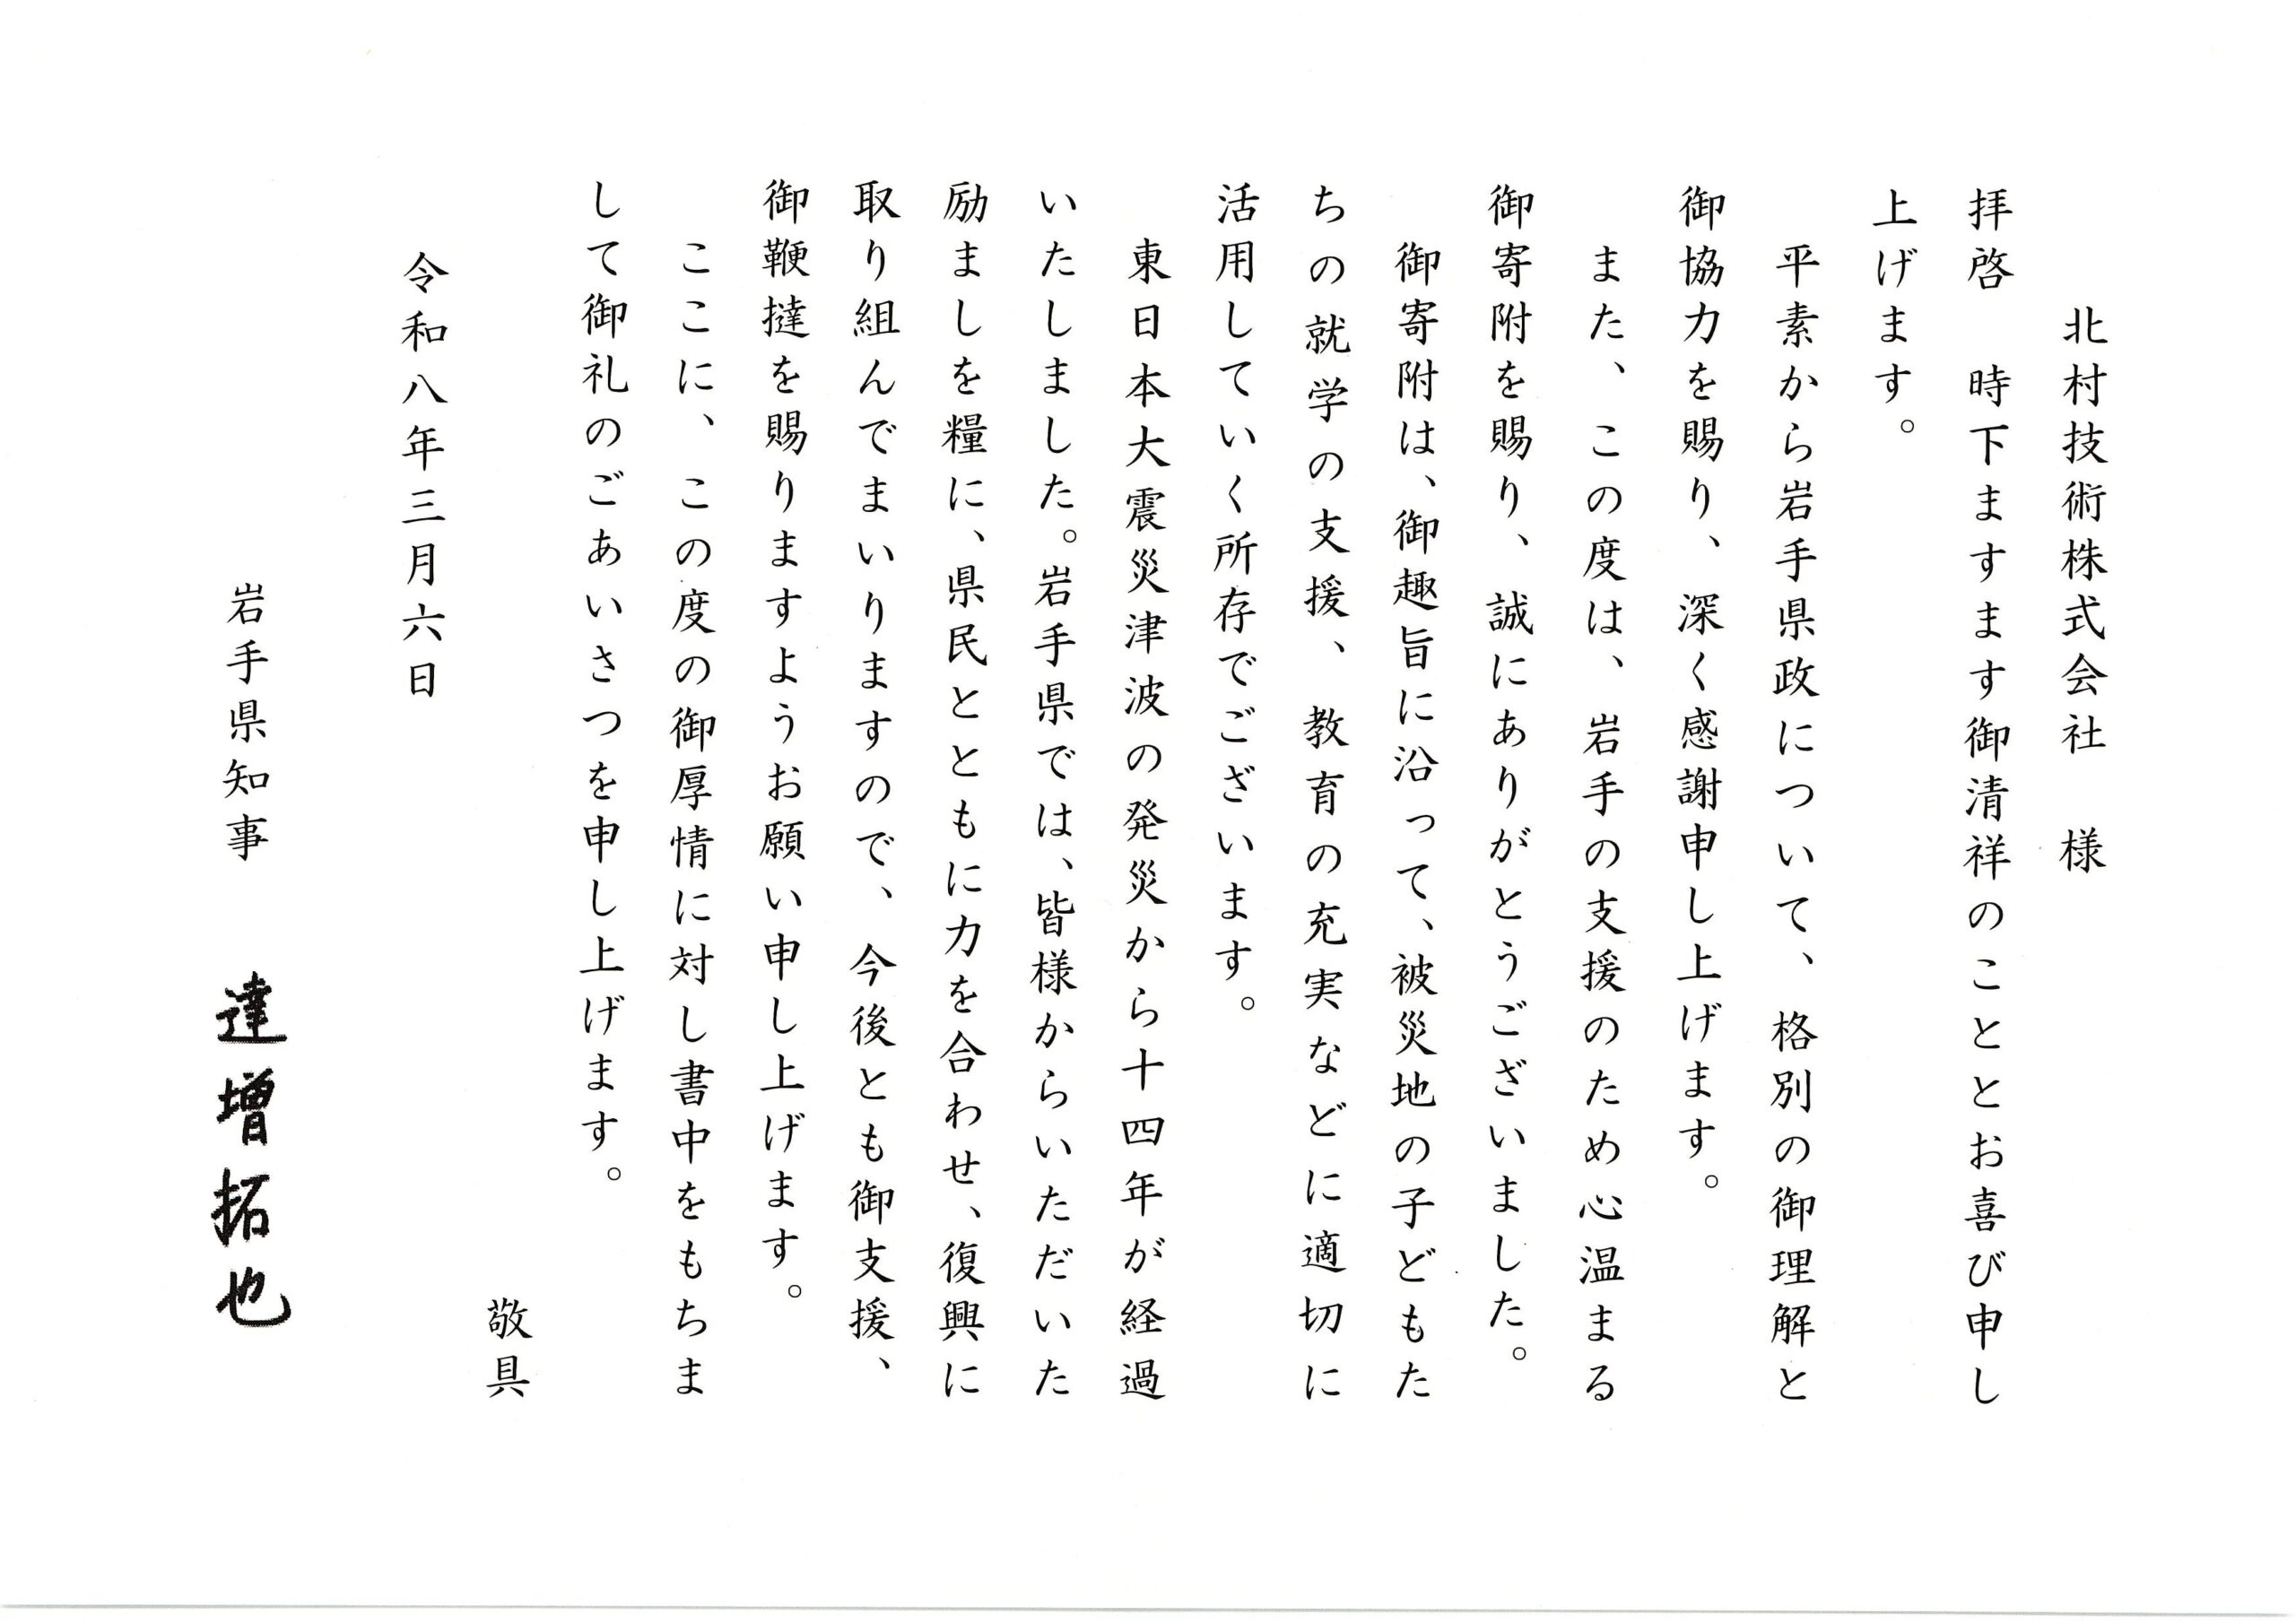 北村技術株式会社　様
拝啓　時下ますます御清祥のこととお喜び申し
上げます。
平素から岩手県政について、格別の御理解と
御協力を賜り、深く感謝申し上げます。
また、この度は、岩手の支援のため心温まる
御寄附を賜り、誠にありがとうございました。
御寄附は、御趣旨に沿って、被災地の子どもた
ちの就学の支援、教育の充実などに適切に
活用していく所存でございます。
東日本大震災津波の発災から十四年が経過
いたしました。岩手県では、皆様からいただいた
励ましを糧に、県民とともに力を合わせ、復興に
取り組んでまいりますので、今後とも御支援、
御鞭撻を賜りますようお願い申し上げます。
ここに、この度の御厚情に対し書中をもちま
して御礼のごあいさつを申し上げます。
敬具
令和八年三月六日
岩手県知事　達増拓也